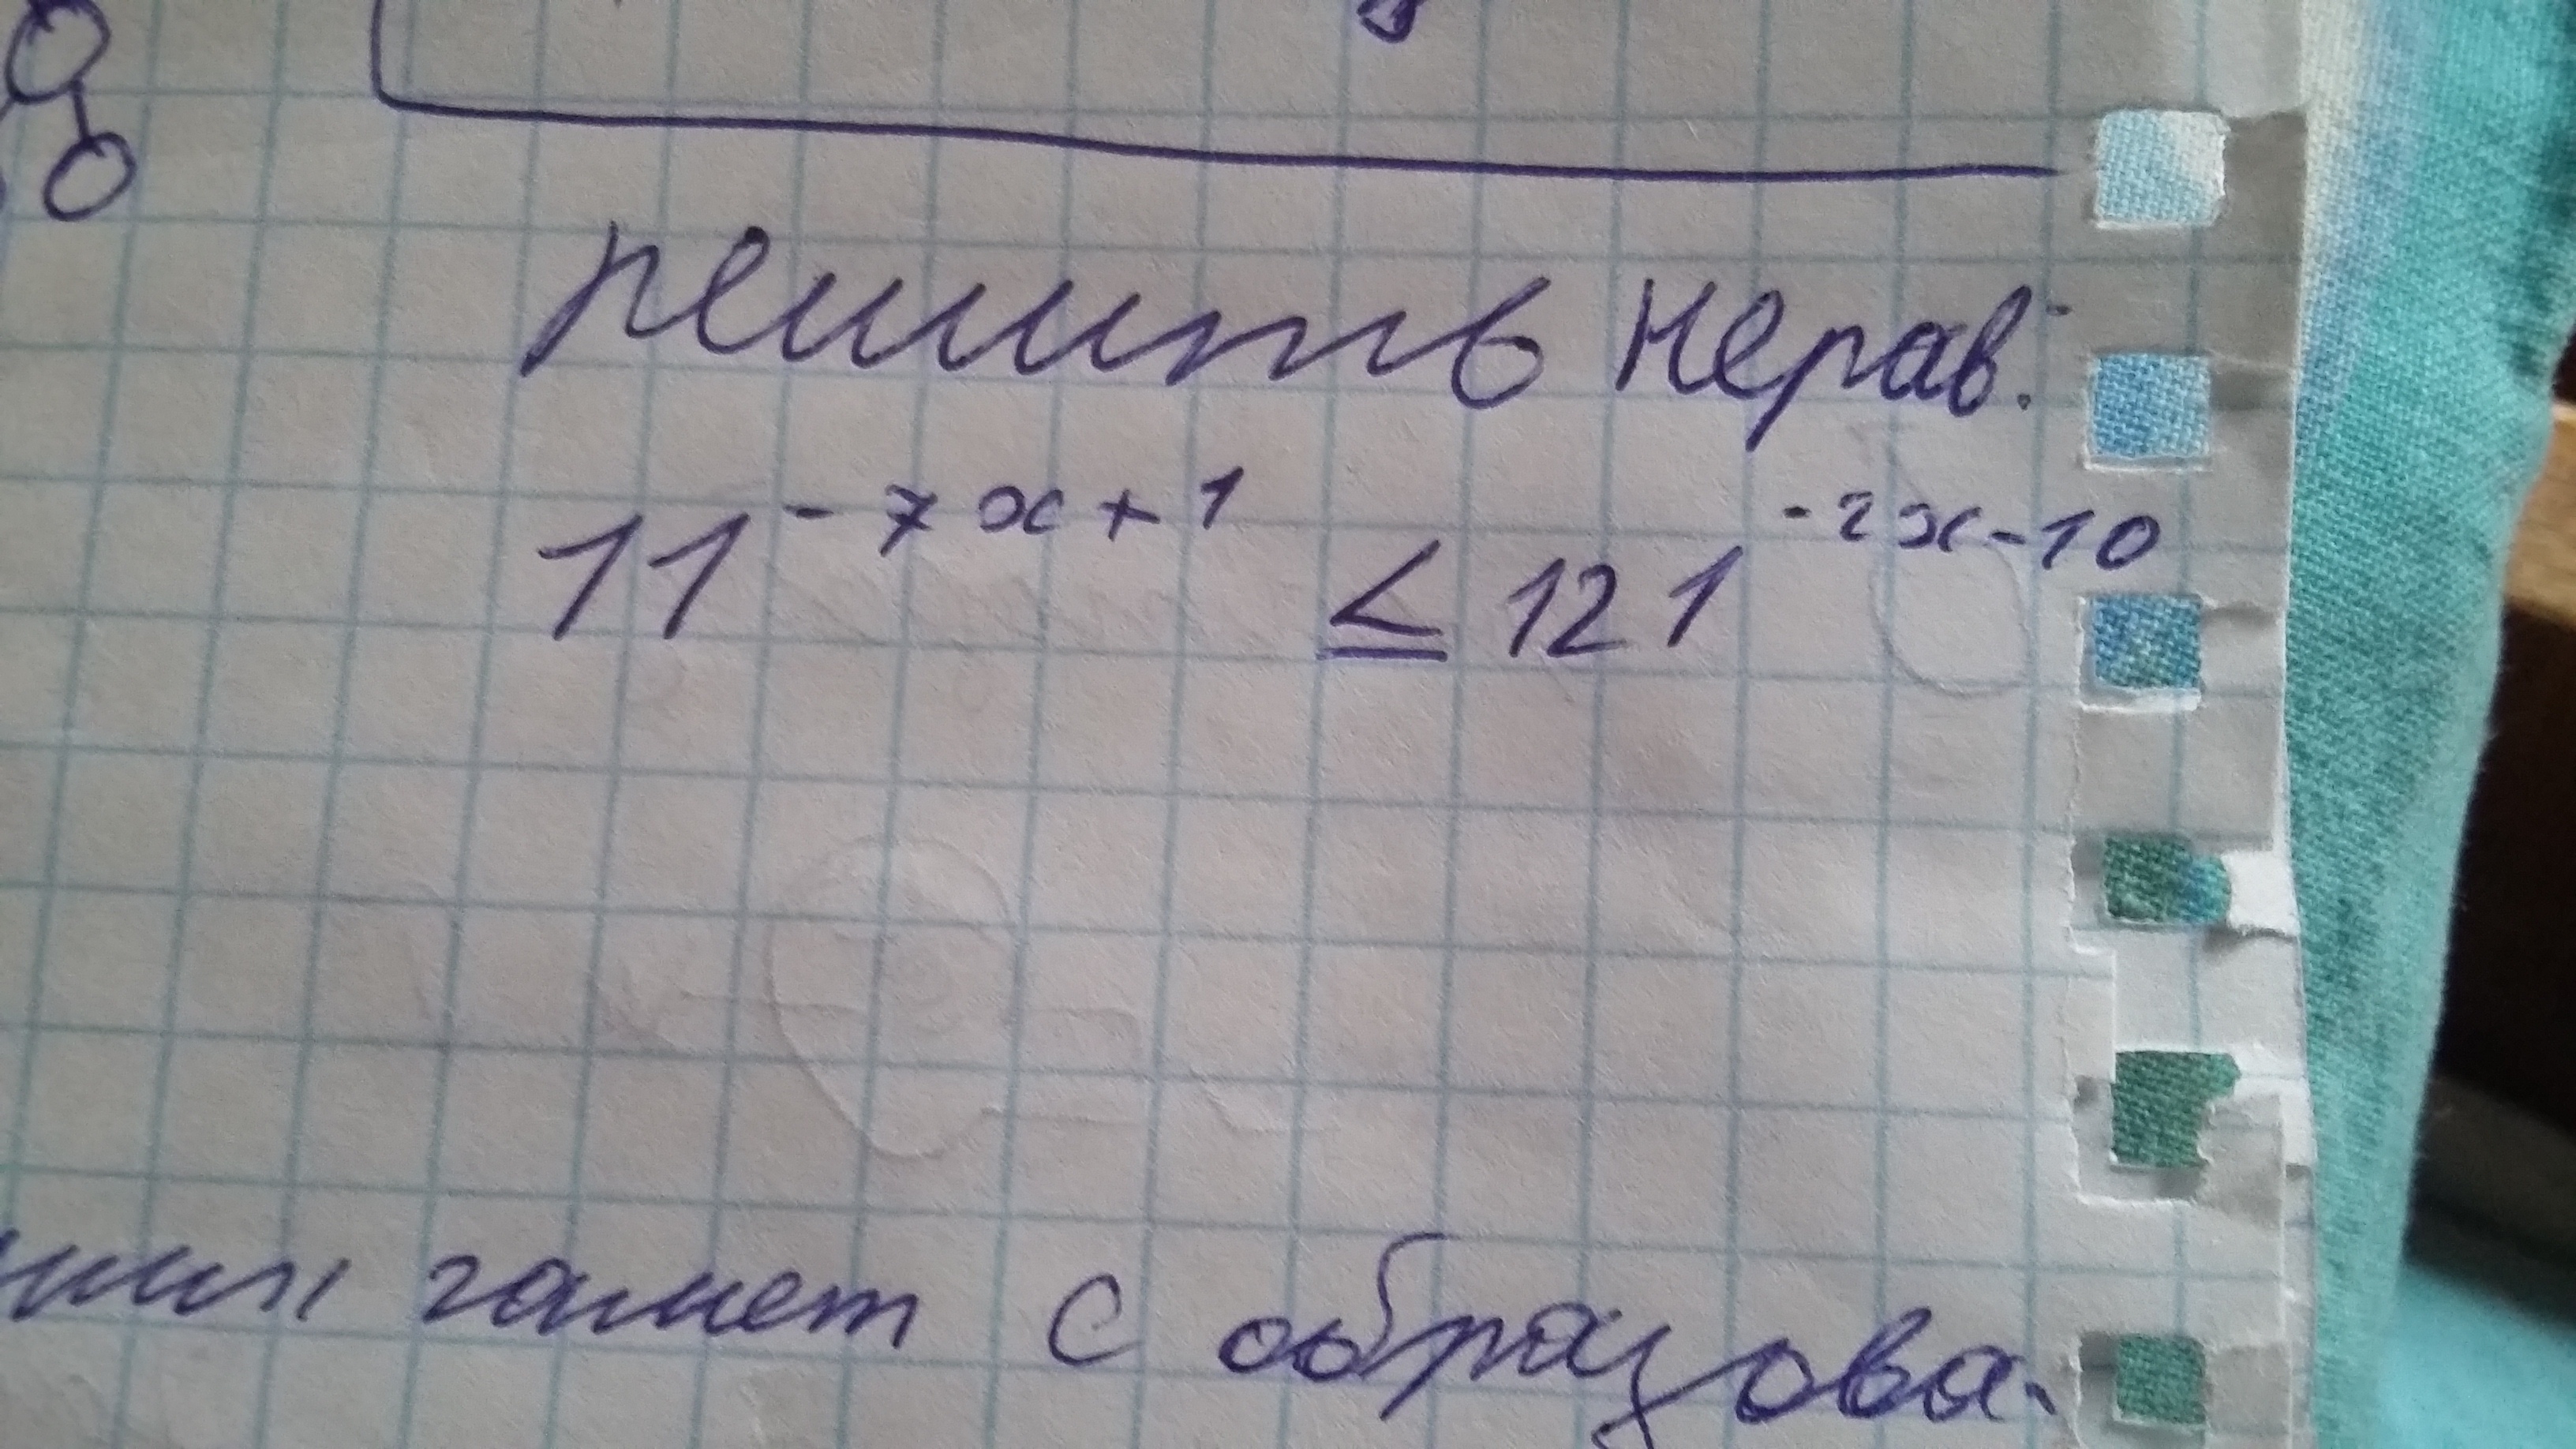 решить нерав.
11^{-7x+1} ≤ 121^{-2x-10}
гамет с образова-